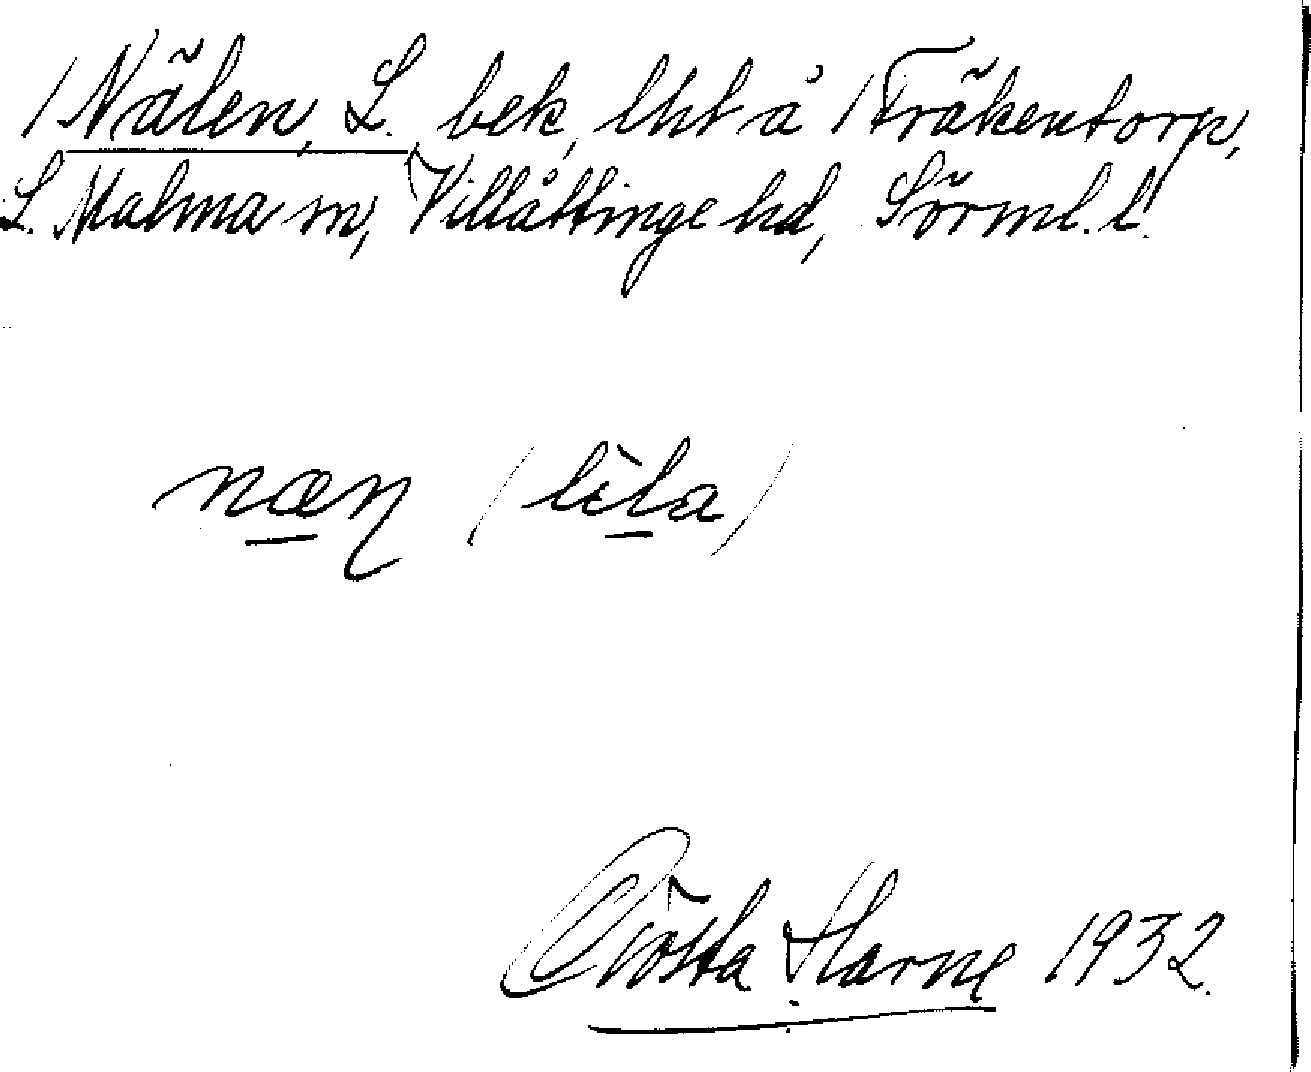 /Nälen, L., bek, lht å /Fräkentorp,
L. Malma sn, Villåttinge hd, Sörml. l.
næn (lìla)
Gösta Harne 1932.